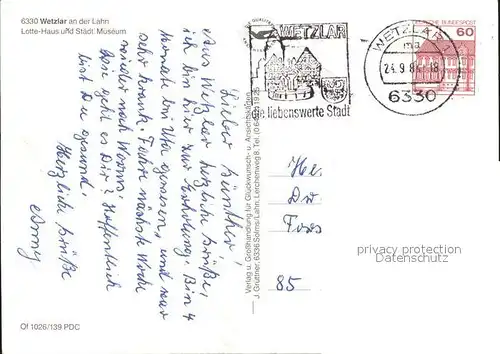 6330 Wetzlar an der Lahn
Lotte-Haus und Städt. Museum
Lieber Günther!
Aus Wetzlar herzliche Grüße,
ich bin hier zur Erholung. Bin 4
Monate im gewesen, und war
sehr krank. Fahre nächste Woche
wieder nach Worms.
Wie geht es Dir? Hoffentlich
bist Du gesund.
Herzliche Grüße
Anny
Of 1026/139 PDC
Verlag u. Großhandlung für Glückwunsch- u. Ansichtskarten
J. Grüttner, 6336 Solms/Lahn, Lerchenweg 8, Tel.
WETZLAR
die liebenswerte Stadt
WETZLAR 1
ma
24.9.8
6330
DEUTSCHE BUNDESPOST
60
He.
85
privacy protection
Datenschutz